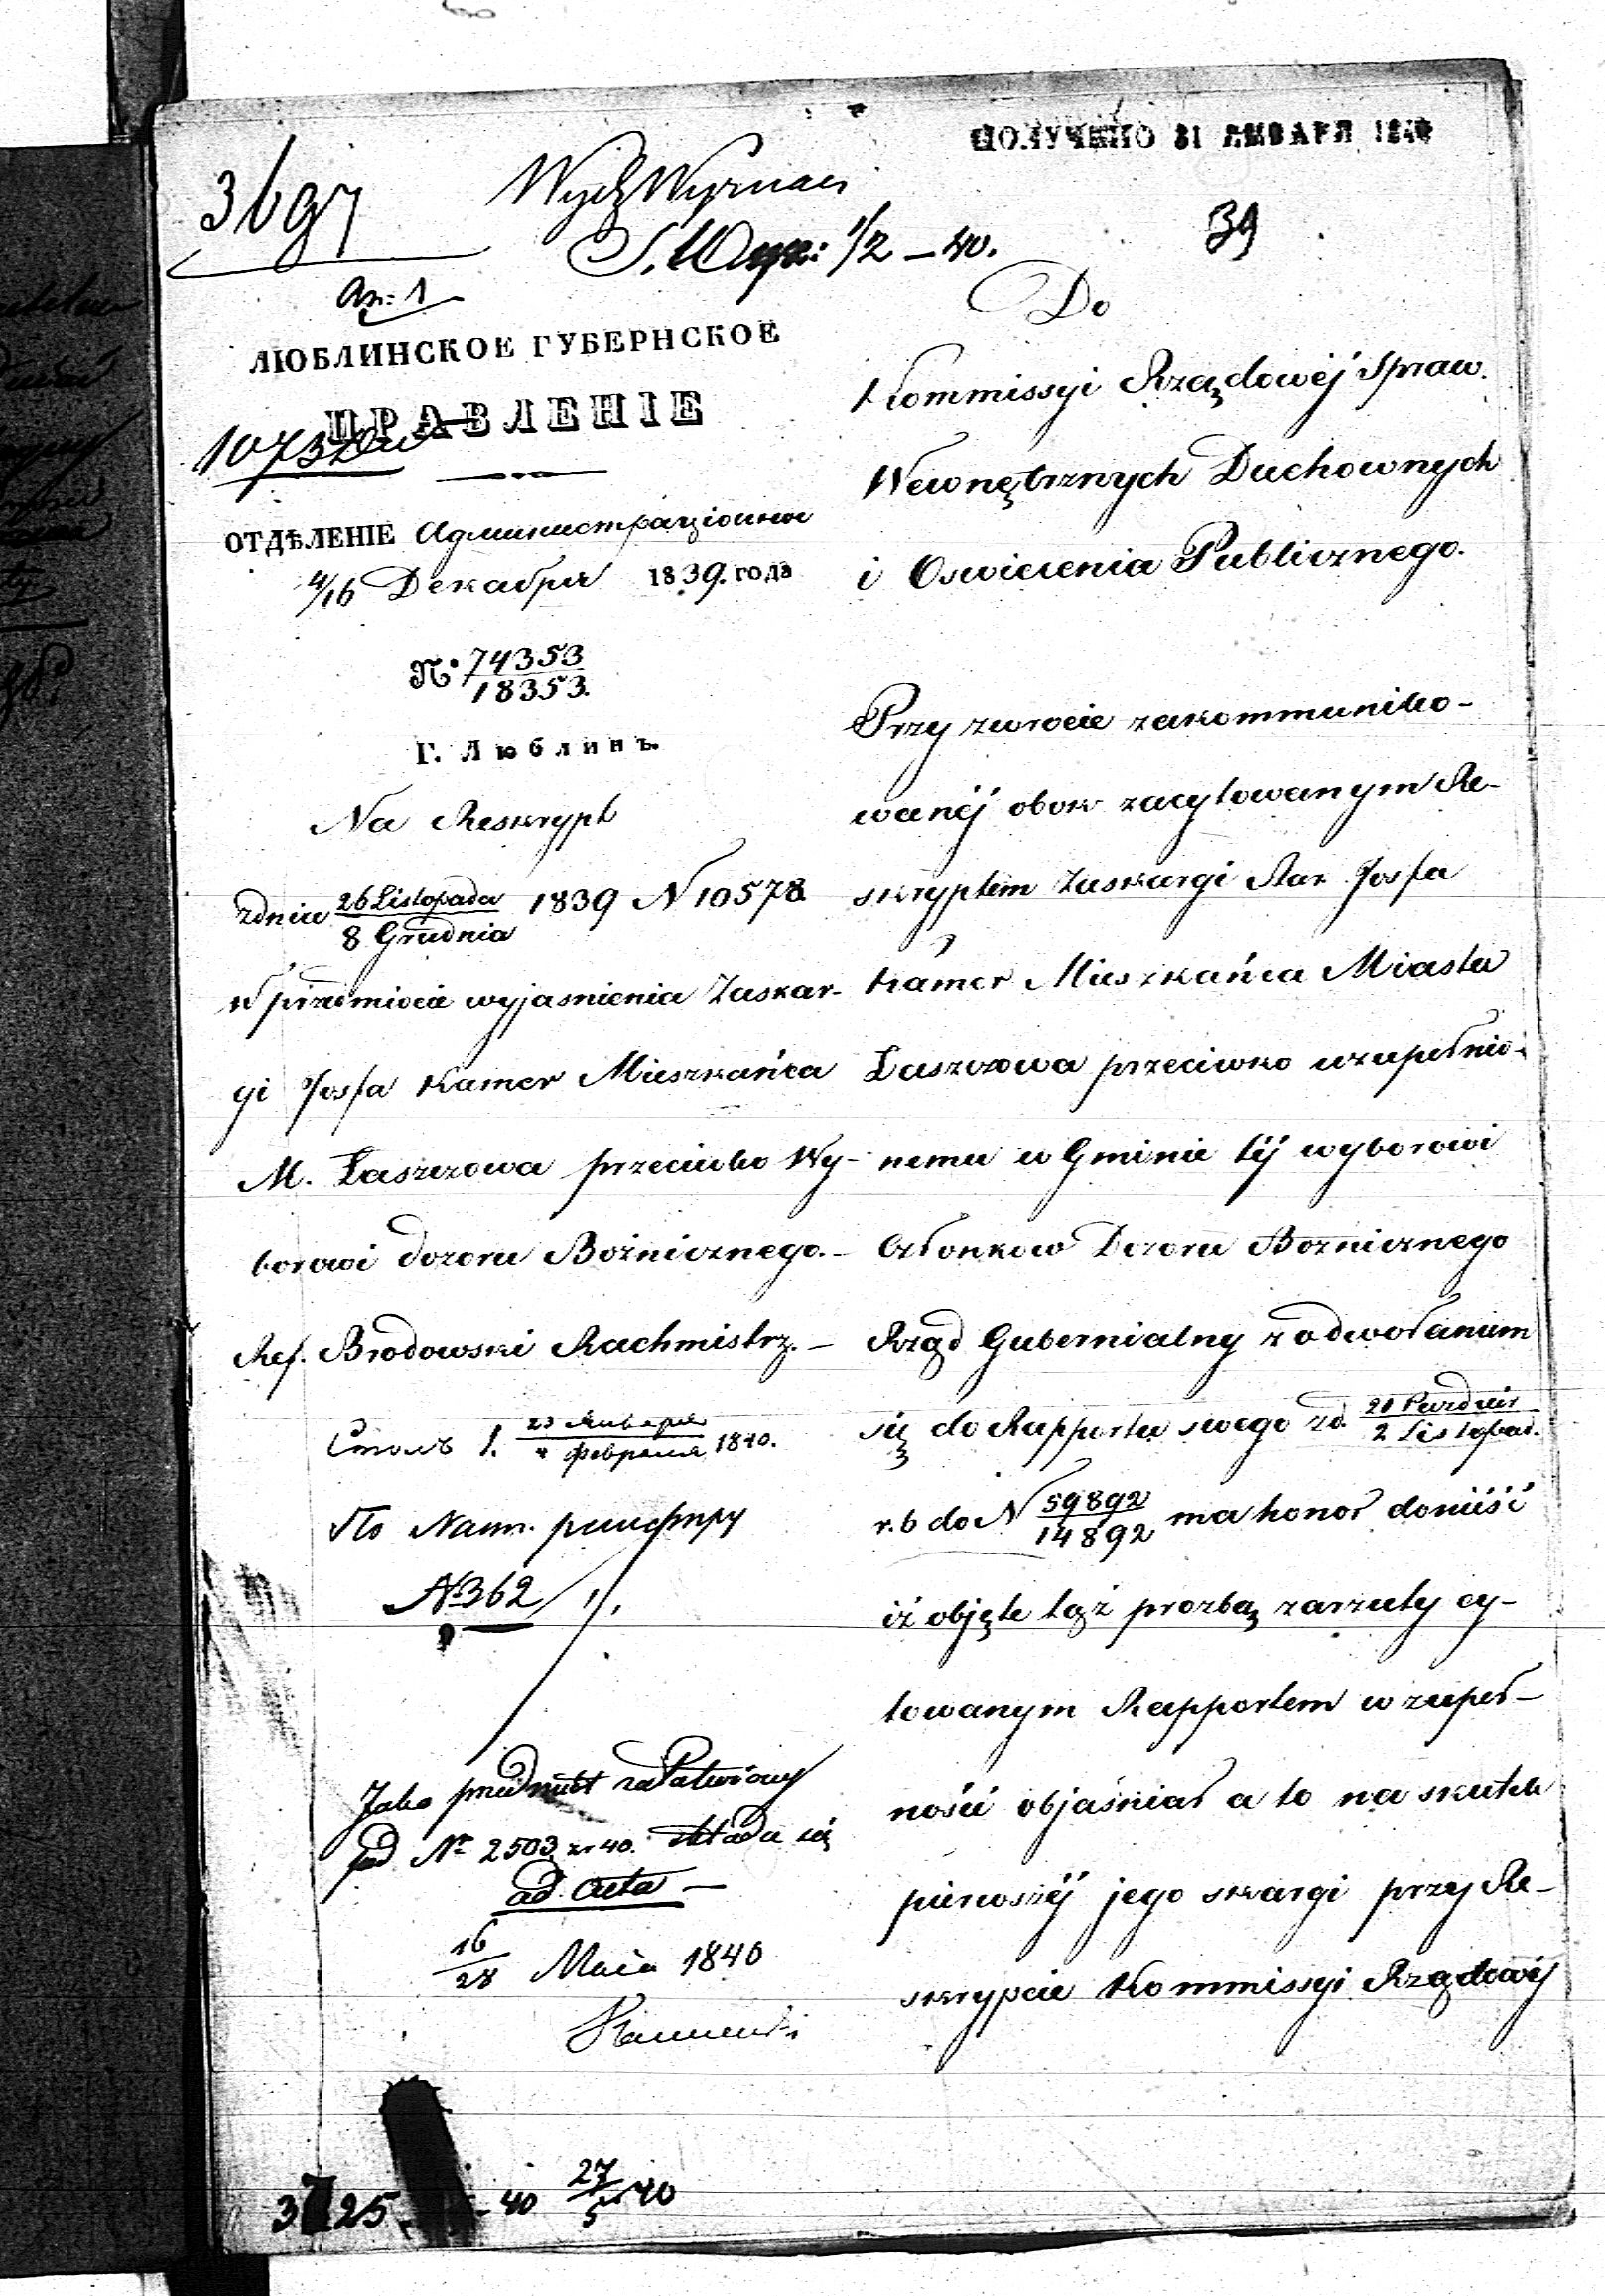 ПОЛУЧЕНО 31 ЯНВАРЯ 1840
3697
Wydz Wyznań
1/2 – 40.
39
ЛЮБЛИНСКОЕ ГУБЕРНСКОЕ
ПРАВЛЕНІЕ
1073
ОТДѢЛЕНІЕ Администраціонное
4/16 Декабря 1839. года
№ 74353/18353.
Г. Люблинъ.
Na Reskrypt
z dnia 26 Listopada/8 Grudnia 1839 N 10578
w przedmiocie wyjasnienia Zaskar-
gi Josfa Kamer Mieszkańca
M. Łaszczowa przeciwko Wy-
borowi dozoru Bóżnicznego.–
Ref. Brodowski Rachmistrz.–
Столъ 1. 23 Января/4 Февраля 1840.
По
№362
Jako przedmiot załatwiony
pod Nr 2503 z r 40. składa się
ad acta –
16/28 Maia 1840
Do
Kommissyi Rządowéj Spraw.
Wewnętrznych Duchownych
i Oswiecenia Publicznego.
Przy zwrocie zakommuniko-
wanéj obok zacytowanym Re-
skryptem Zaskargi Star Josfa
Kamer Mieszkańca Miasta
Łaszczowa przeciwko uzupełnio-
nemu w Gminie téj wyborowi
Członkow Dozoru Boznicznego
Rząd Gubernialny z odwołaniem
się do Rapportu swego zd. 21 Pazdzier/2 Listopad.
r. b do N 59892/14892 ma honor donieść
iż objęte tąż prozbą zarzuty cy-
towanym Rapportem w zupeł-
ności objaśniał a to na skutek
pierwszéj jego skargi przy Re-
skrypcie Kommissyi Rządowéj
40 27/5 40